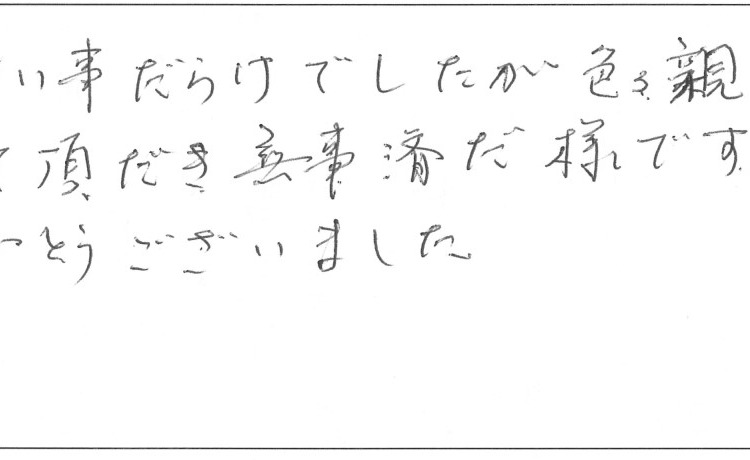 い事だらけでしたが色々親
て頂だき無事済だ様です
とうございました